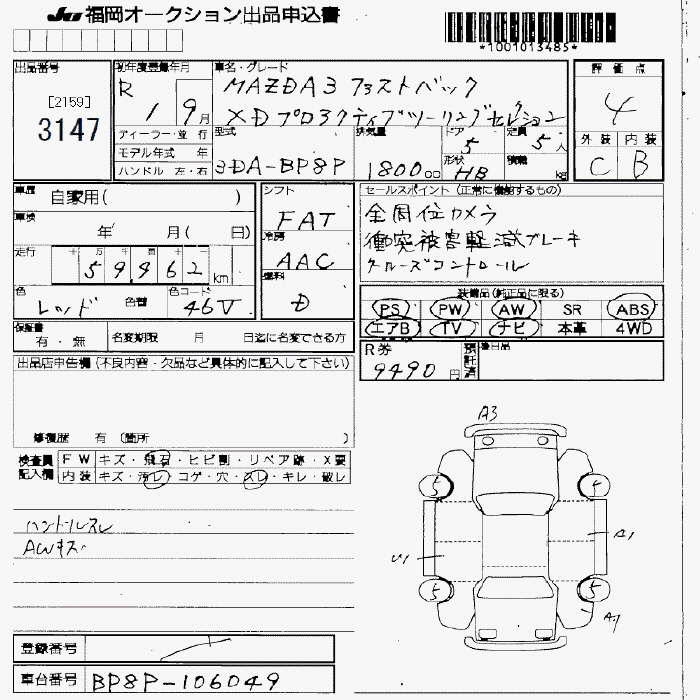 JU 福岡オークション出品申込書
*1001013485*
出品番号
[2159]
3147
初年度登録年月
R 1 9月
ディーラー・並行
モデル年式 年
ハンドル 左・右
車名・グレード
MAZDA3 ファストバック
XD プロアクティブツーリングセレクション
型式
3DA-BP8P
排気量
1800cc
ドア
5
定員
5人
形状
HB
積載
kg
評価点
4
外装 内装
C B
車歴 自家用( )
車検 年 月( 日)
走行
十 万 千 百 十 一
59,462km
色
レッド 色替
色コード
46V
シフト
FAT
冷房
AAC
燃料
D
セールスポイント(正常に機能するもの)
全周位カメラ
衝突被害軽減ブレーキ
クルーズコントロール
装備品(純正品に限る)
PS PW AW SR ABS
エアB TV ナビ 本革 4WD
保証書
有・無
名変期限 月 日迄に名変できる方
R券
9490円
預託済
後日品
出品店申告欄(不良内容・欠品など具体的に記入して下さい)
修復歴 有 (箇所 )
検査員記入欄
FW キズ・飛石・ヒビ割・リペア跡・X要
内装 キズ・汚レ・コゲ・穴・スレ・キレ・破レ
ハンドルスレ
AWキズ
A3
5 5
A1
U1
5 5
登録番号
車台番号 BP8P-106049